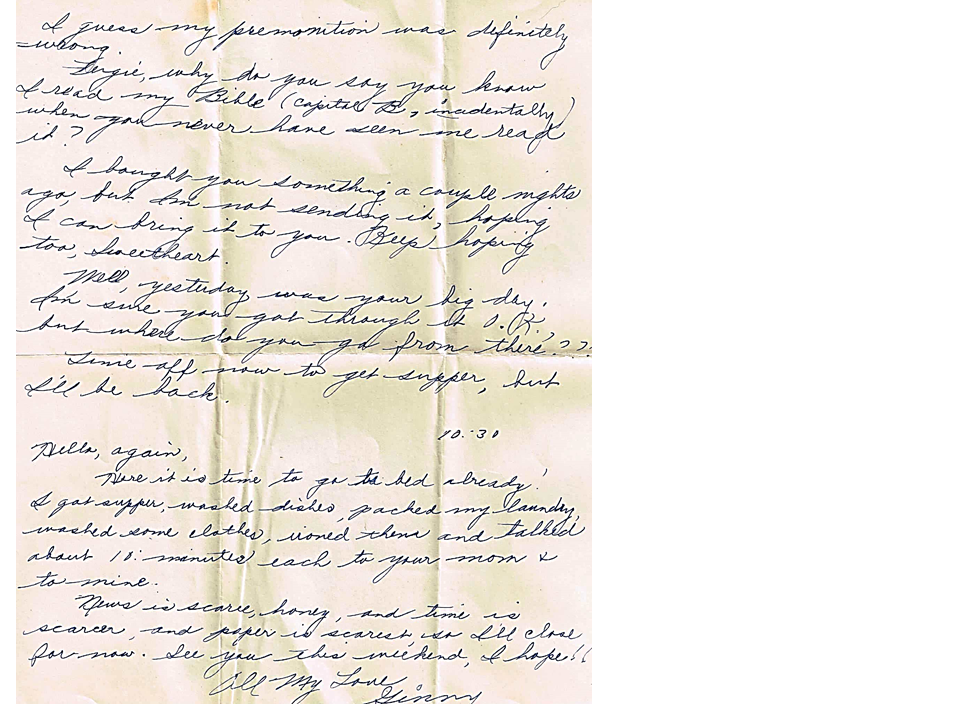 I guess my premonition was definitely
wrong.
Fergie, why do you say you know
I read my Bible (capital B, incidentally)
when you never have seen me read
it?
I bought you something a couple nights
ago, but I'm not sending it, hoping
I can bring it to you. Keep hoping
too, Sweetheart.
Well, yesterday was your big day.
I'm sure you got through it O.K.,
but where do you go from there???
Time off now to get supper, but
I'll be back.
10:30
Hello, again,
Here it is time to go to bed already!
I got supper, washed dishes, packed my laundry,
washed some clothes, ironed them and talked
about 10: minutes each to your mom &
to mine.
News is scarce, honey, and time is
scarcer, and paper is scarest, so I'll close
for now. See you this weekend, I hope!!
All My Love
Ginny